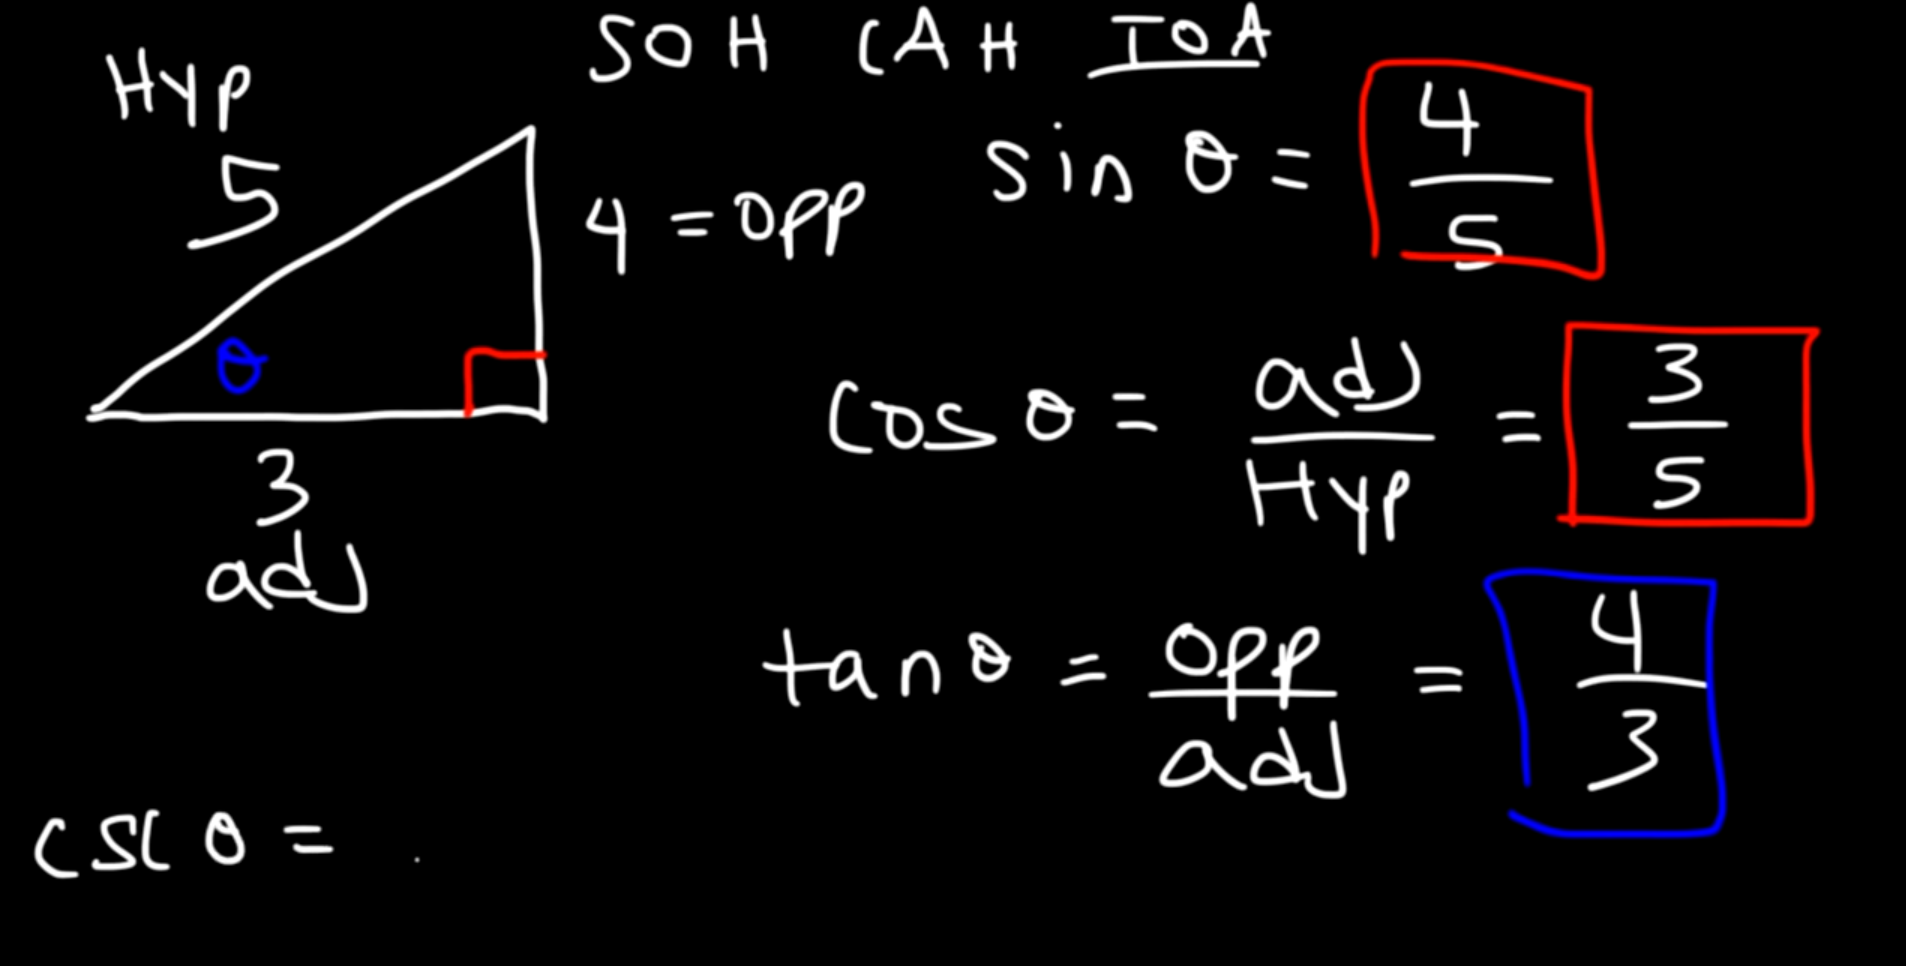 SOH CAH TOA
Hyp
5
4 = opp
θ
3
adj
sin θ = 4/5
cos θ = adj/Hyp = 3/5
tan θ = opp/adj = 4/3
csc θ =